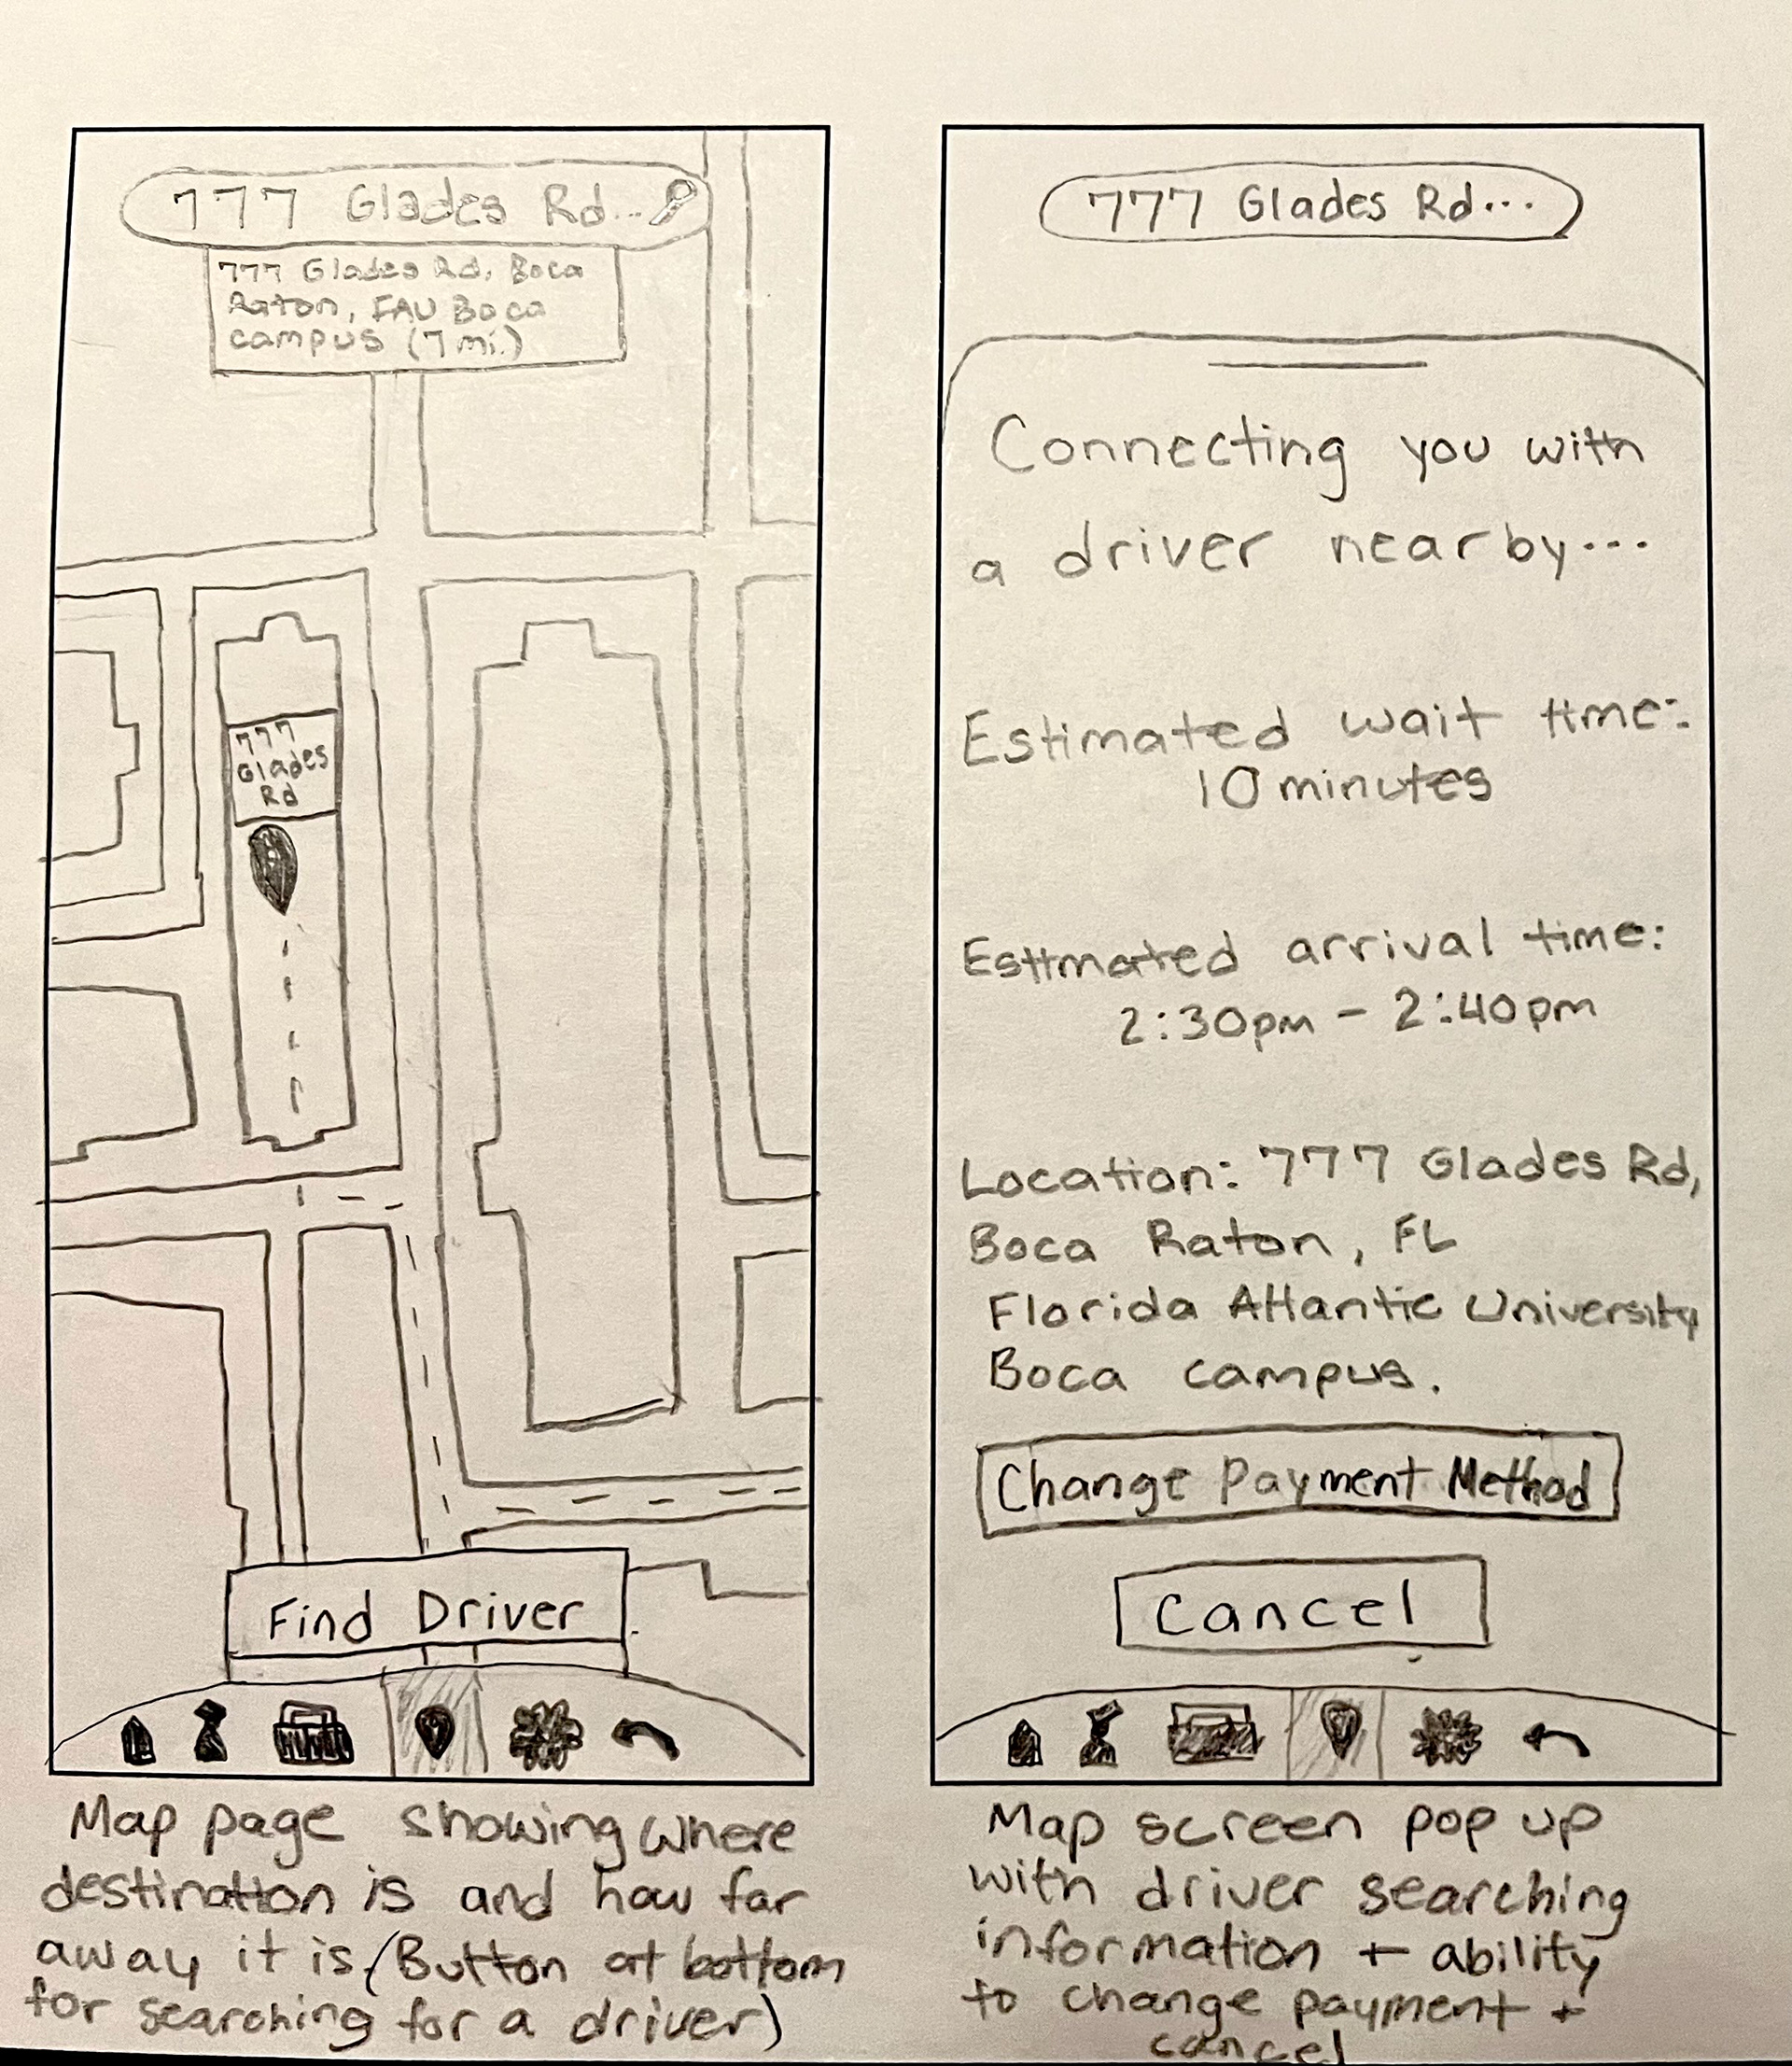 777 Glades Rd...
777 Glades Rd, Boca
Raton, FAU Boca
campus (7 mi.)
777
Glades
Rd
Find Driver
Map page showing where
destination is and how far
away it is (Button at bottom
for searching for a driver)
777 Glades Rd...
Connecting you with
a driver nearby...
Estimated wait time:
10 minutes
Estimated arrival time:
2:30pm - 2:40pm
Location: 777 Glades Rd,
Boca Raton, FL
Florida Atlantic University
Boca campus.
Change Payment Method
Cancel
Map screen pop up
with driver searching
information + ability
to change payment +
cancel